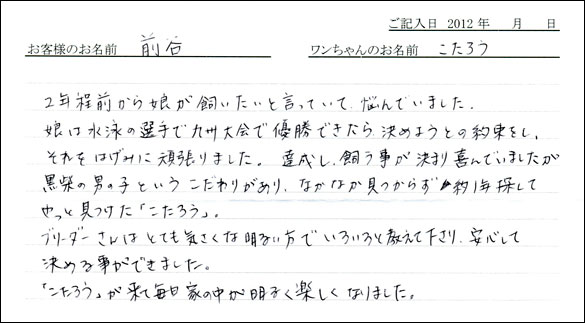 ご記入日 2012 年 月 日
お客様のお名前 前谷 ワンちゃんのお名前 こたろう
2年程前から娘が飼いたいと言っていて、悩んでいました。
娘は水泳の選手で九州大会で優勝できたら決めようとの約束をし、
それをはげみに頑張りました。達成し、飼う事が決まり喜んでいましたが
黒柴の男の子というこだわりがあり、なかなか見つからず約1年探して
やっと見つけた「こたろう」。
ブリーダーさんはとても気さくな明るい方でいろいろと教えて下さり、安心して
決める事ができました。
「こたろう」が来て毎日家の中が明るく楽しくなりました。